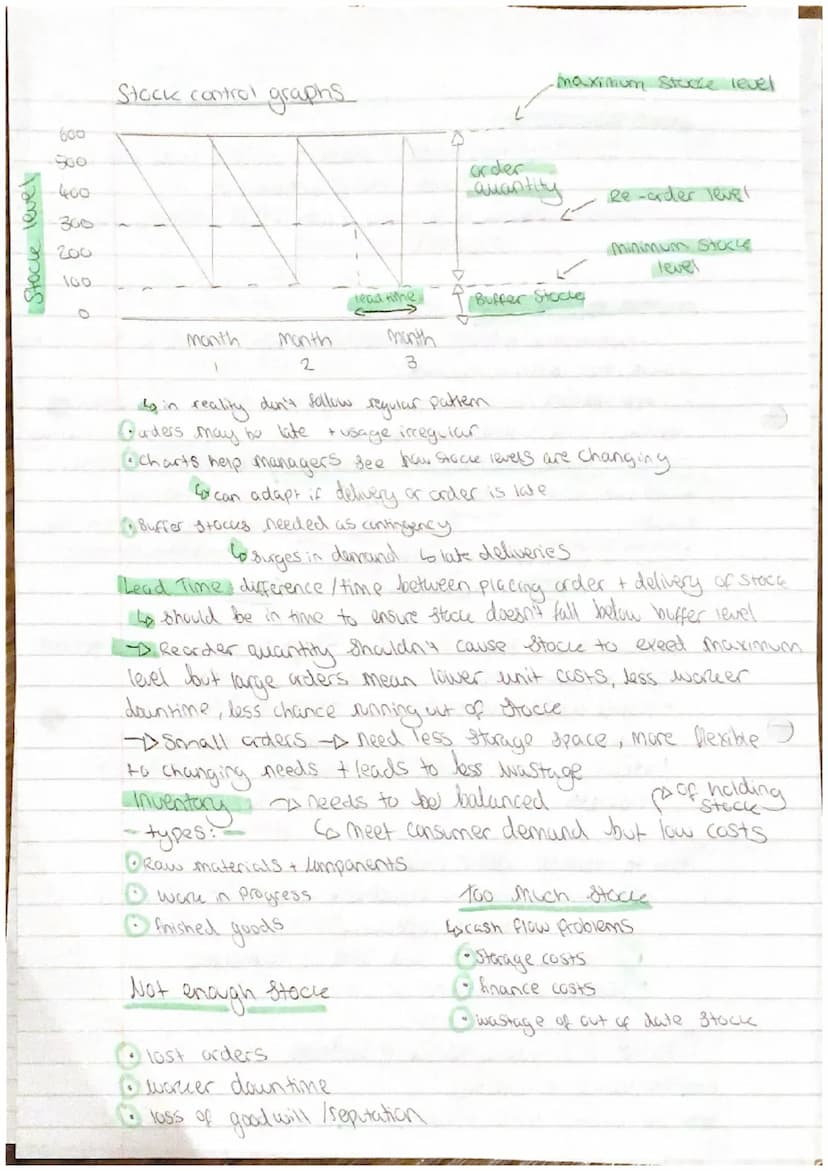 Stock control graphs
maximum stock level
600
500
400
300
200
100
0
Stock level
order
quantity
Re-order level
minimum stock
level
lead time
Buffer Stock
month
1
month
2
month
3
in reality don't follow regular pattern
orders may be late + usage irregular
Charts help managers see how stock levels are changing
can adapt if delivery or order is late
Buffer stocks needed as contingency
surges in demand ↳ late deliveries
Lead Time: difference/time between placing order + delivery of stock
↳ should be in time to ensure stock doesn't fall below buffer level
→ Reorder quantity shouldn't cause stock to exeed maximum
level but large orders mean lower unit costs, less worker
downtime, less chance running out of stock
→ Small orders → need less storage space, more flexible
to changing needs + leads to less wastage
Inventory → needs to be balanced
of holding
stock
- types: -
↳ meet consumer demand but low costs
Raw materials + components
work in progress
finished goods
Too much stock
↳ cash flow problems
storage costs
finance costs
wastage of out of date stock
Not enough stock
lost orders
worker downtime
loss of goodwill /reputation